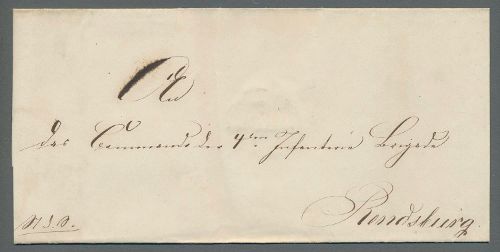 An
das Commando der 4ten Infanterie Brigade
Rendsburg.